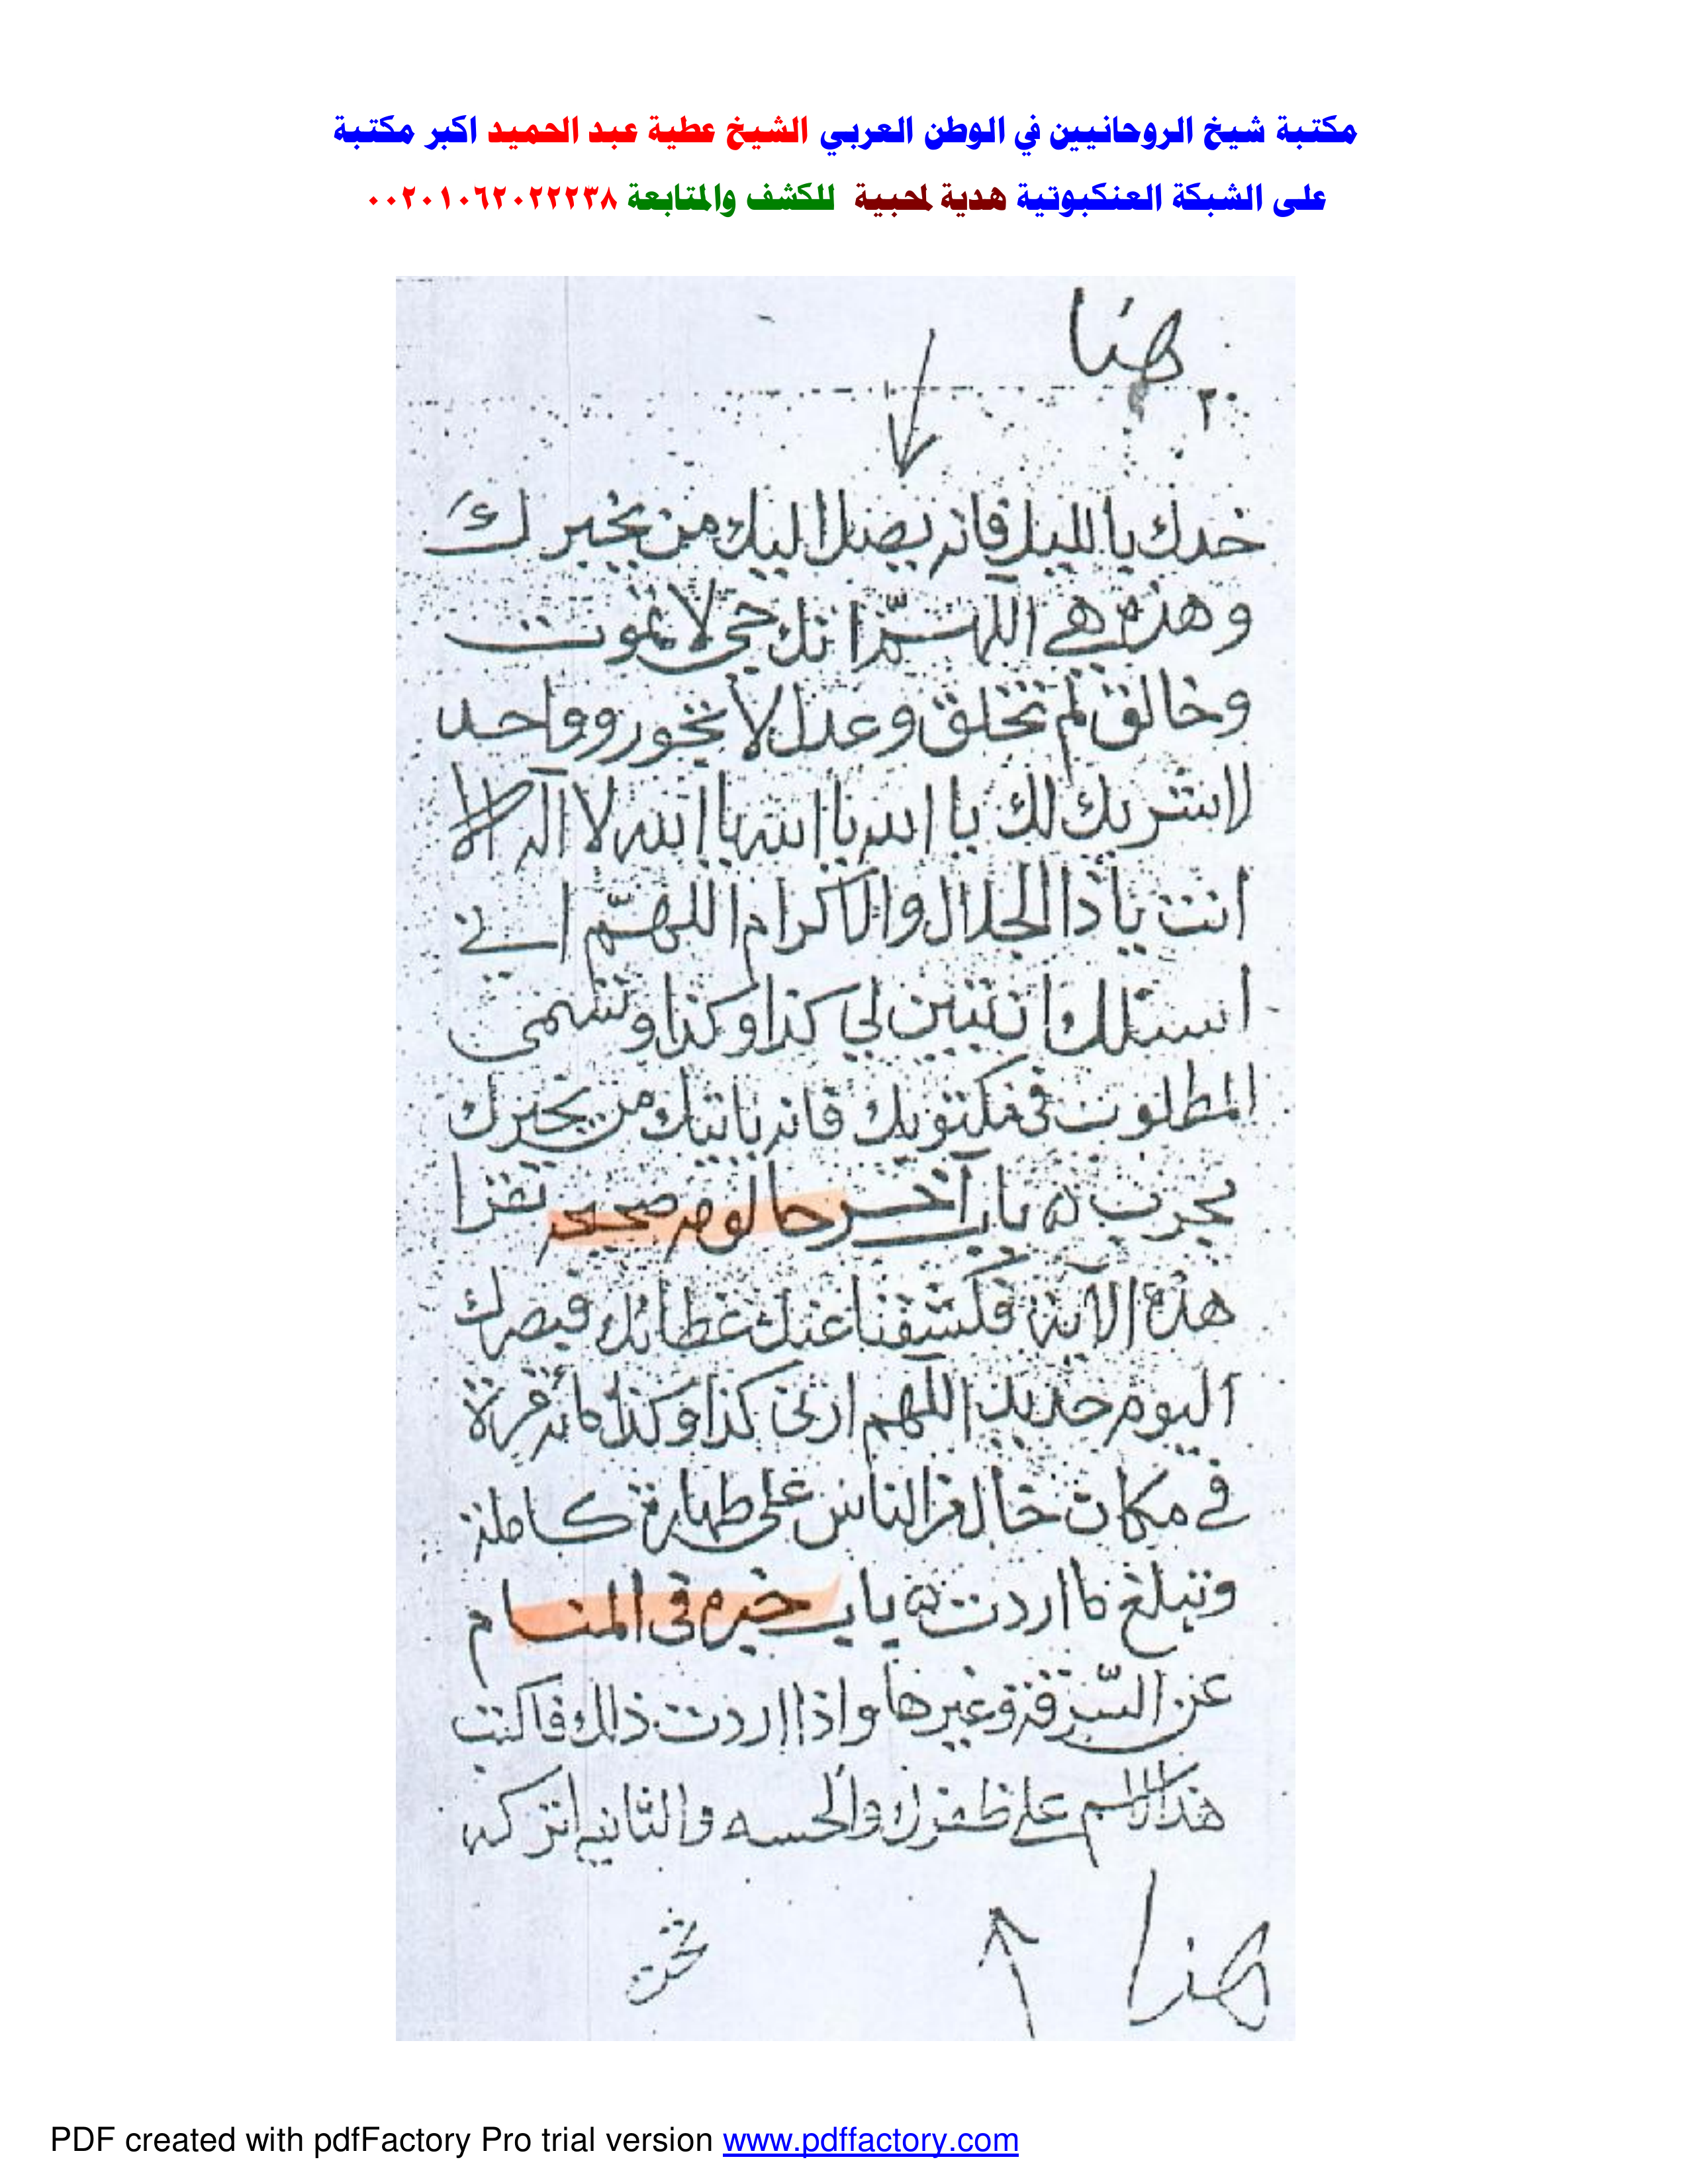 مكتبة شيخ الروحانيين في الوطن العربي الشيخ عطية عبد الحميد اكبر مكتبة
على الشبكة العنكبوتية هدية لمحبية للكشف والمتابعة ٠٠٢٠١٠٦٢٠٢٢٢٣٨
هنا
٢٠
خدك بالليل فانه يصل اليك من يخبرك
وهذه هي اللهم انك حي لا تموت
وخالق لم تخلق وعدل لا تجور وواحد
لا شريك لك يا الله يا الله يا الله لا اله الا
انت يا ذا الجلال والاكرام اللهم اني
اسئلك ان تبين لي كذا وكذا وتسمى
المطلوب في مكتوبك فانه ياتيك من يخبرك
مجرب باب آخر صحيح تقرا
هذه الاية فكشفنا عنك غطائك فبصرك
اليوم حديد اللهم ارنى كذا وكذا مرة
في مكان خال الناس على طهارة كاملة
وتبلغ ما اردت باب خيره في المنام
عن السرقة وغيرها واذا اردت ذلك فاكتب
هذا على ظفرك والحسه والثانية اتركه
هنا